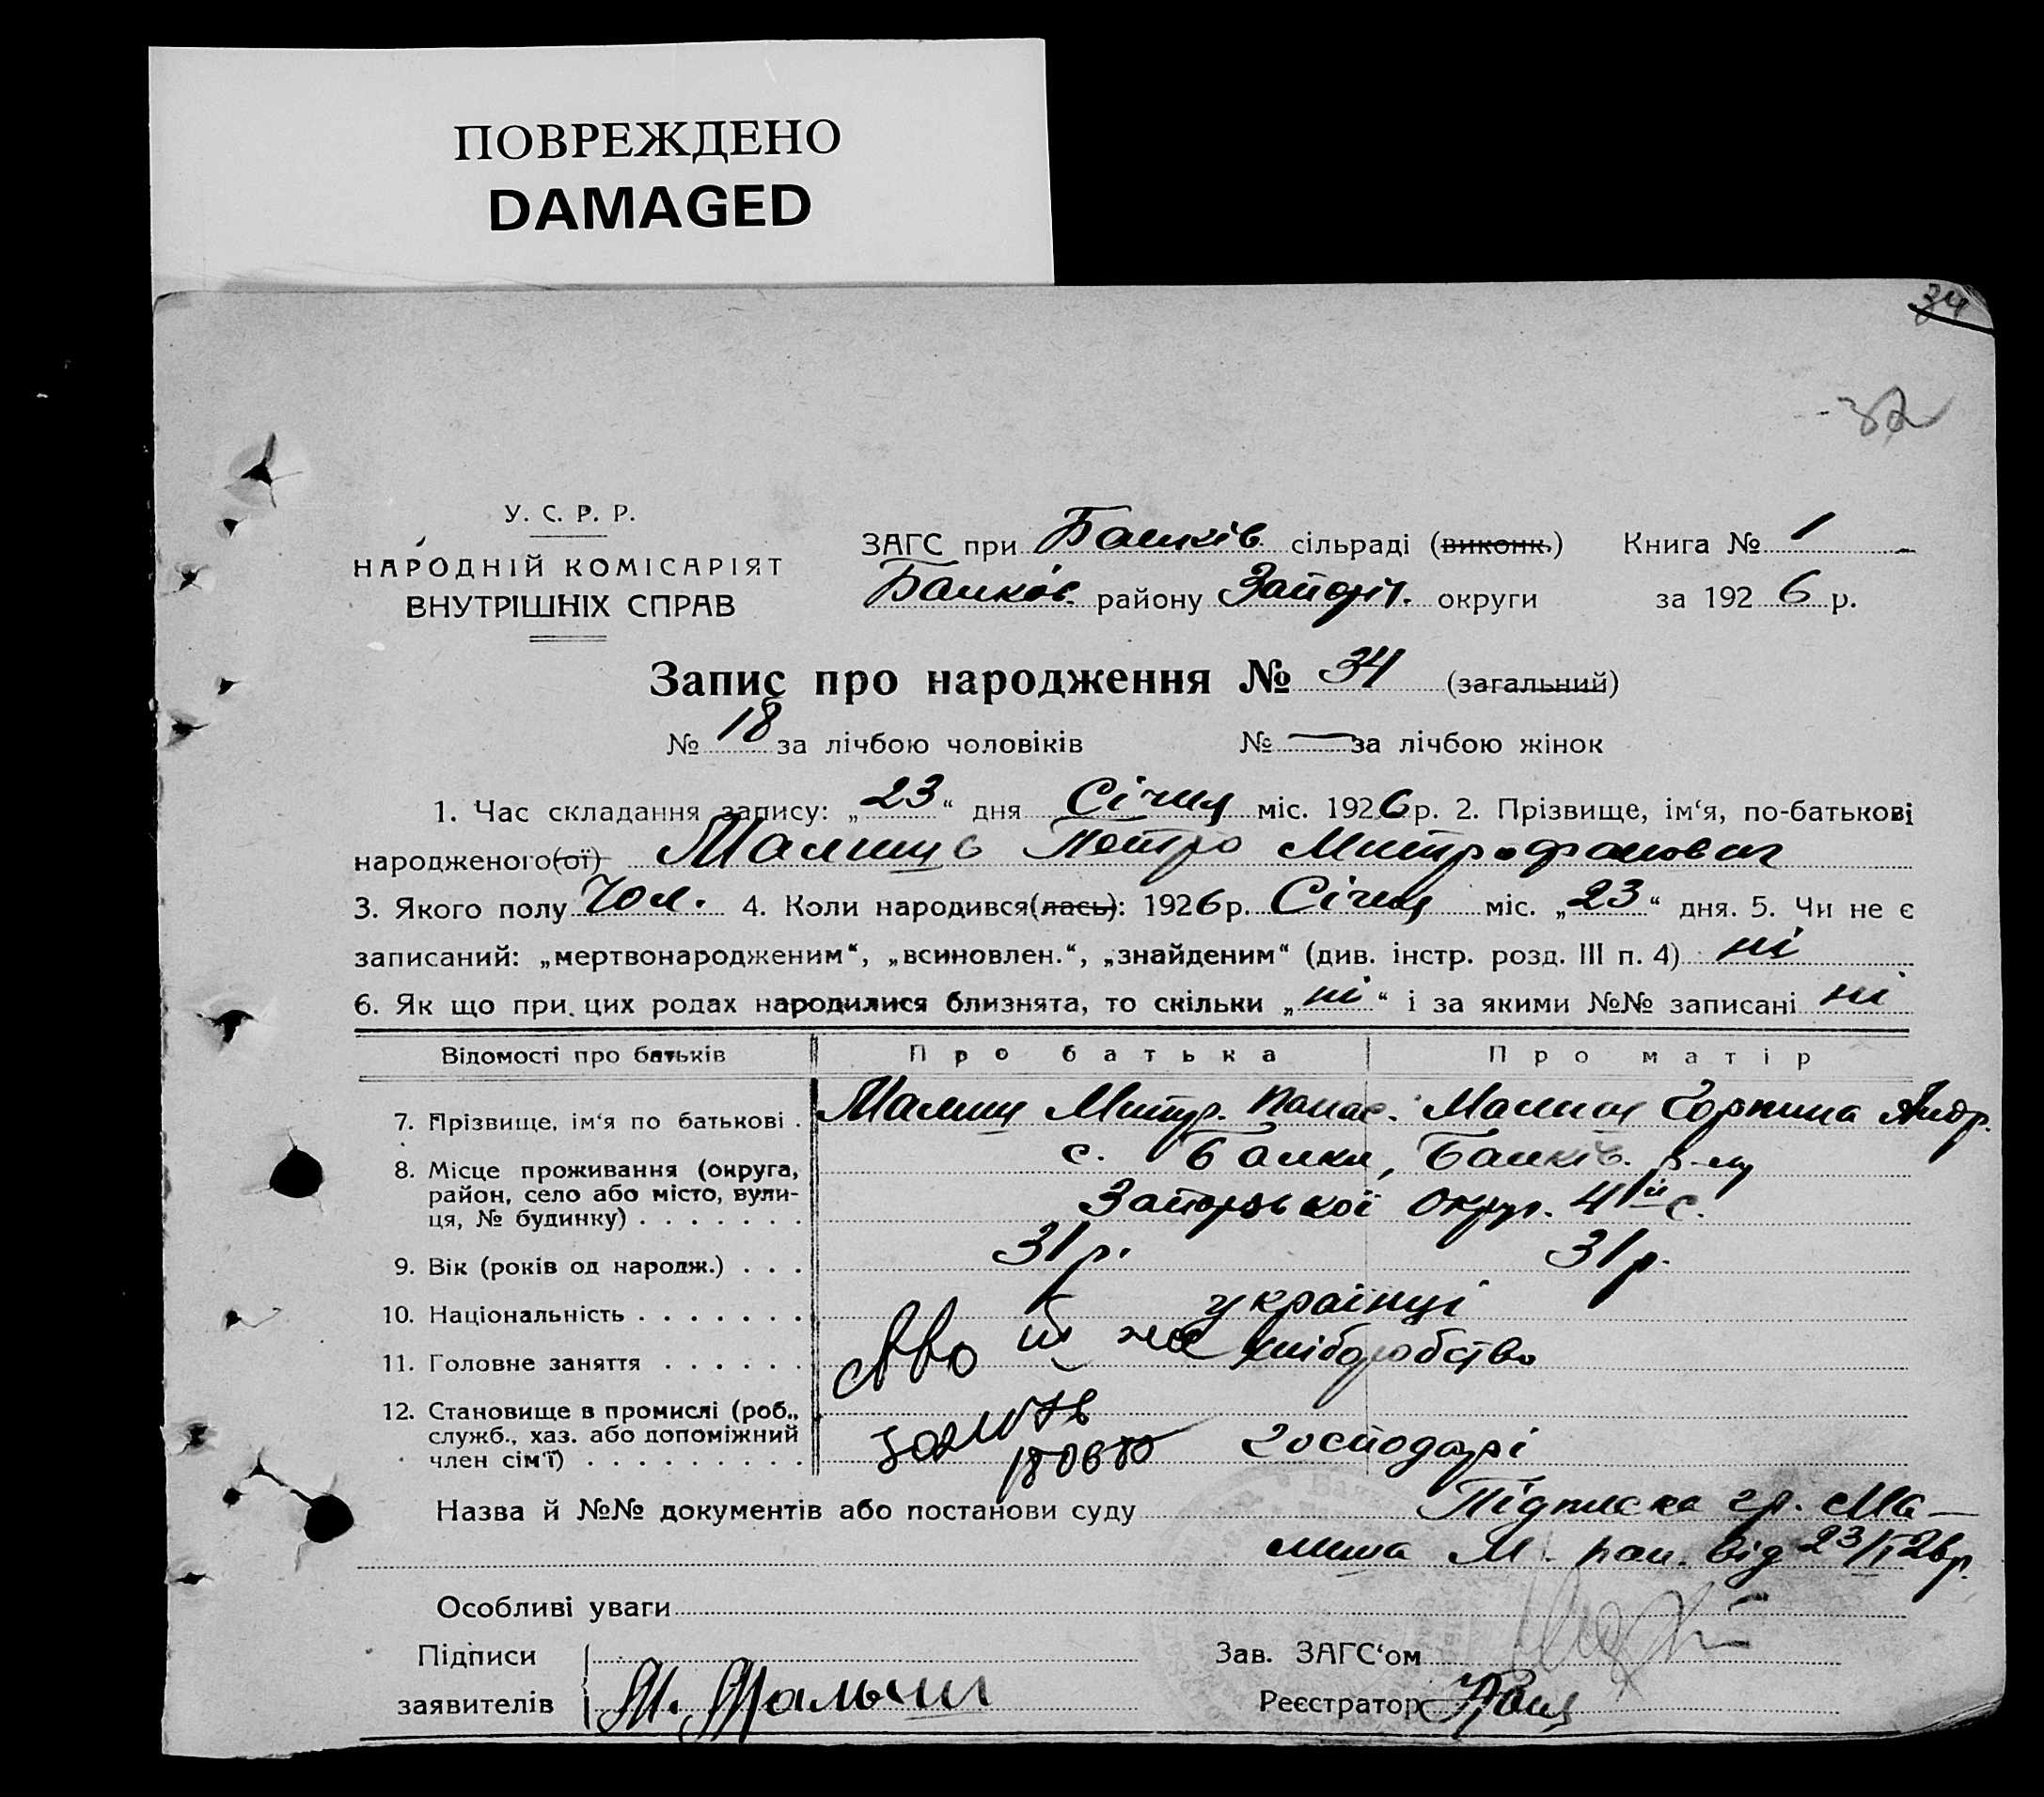 ПОВРЕЖДЕНО
DAMAGED
34
32
У. С. Р. Р.
НАРОДНІЙ КОМІСАРІЯТ
ВНУТРІШНІХ СПРАВ
ЗАГС при Балків. сільраді (виконк.) Книга № 1
Балків. району Запоріз. округи за 1926 р.
Запис про народження № 34 (загальний)
№ 18 за лічбою чоловіків № — за лічбою жінок
1. Час складання запису: „23“ дня Січня міс. 1926 р. 2. Прізвище, ім‘я, по-батькові
народженого(ої) Петро Митрофанович
3. Якого полу Чол. 4. Коли народився(лась): 1926 р. Січня міс. „23“ дня. 5. Чи не є
записаний: „мертвонародженим“, „всиновлен.“, „знайденим“ (див. інстр. розд. III п. 4) ні
6. Як що при цих родах народилися близнята, то скільки „ні“ і за якими №№ записані ні
Відомості про батьків Про батька Про матір
7. Прізвище, ім‘я по батькові . Митр. Панас. Горпина Андр.
8. Місце проживання (округа, район, село або місто, вулиця, № будинку) . . . . . . . с. Балки, Балків. р-ну
Запорізької округ.
9. Вік (років од народж.) . . . 31 р. 31 р.
10. Національність . . . . . . . українці
11. Головне заняття . . . . . . хліборобство
12. Становище в промислі (роб., служб., хаз. або допоміжний член сім‘ї) . . . . . . . . . господарі
Назва й №№ документів або постанови суду Підписка гр. Ма-
М. Пан. від 23/I 26 р.
Особливі уваги
Підписи
заявителів
Зав. ЗАГС‘ом
Реєстратор